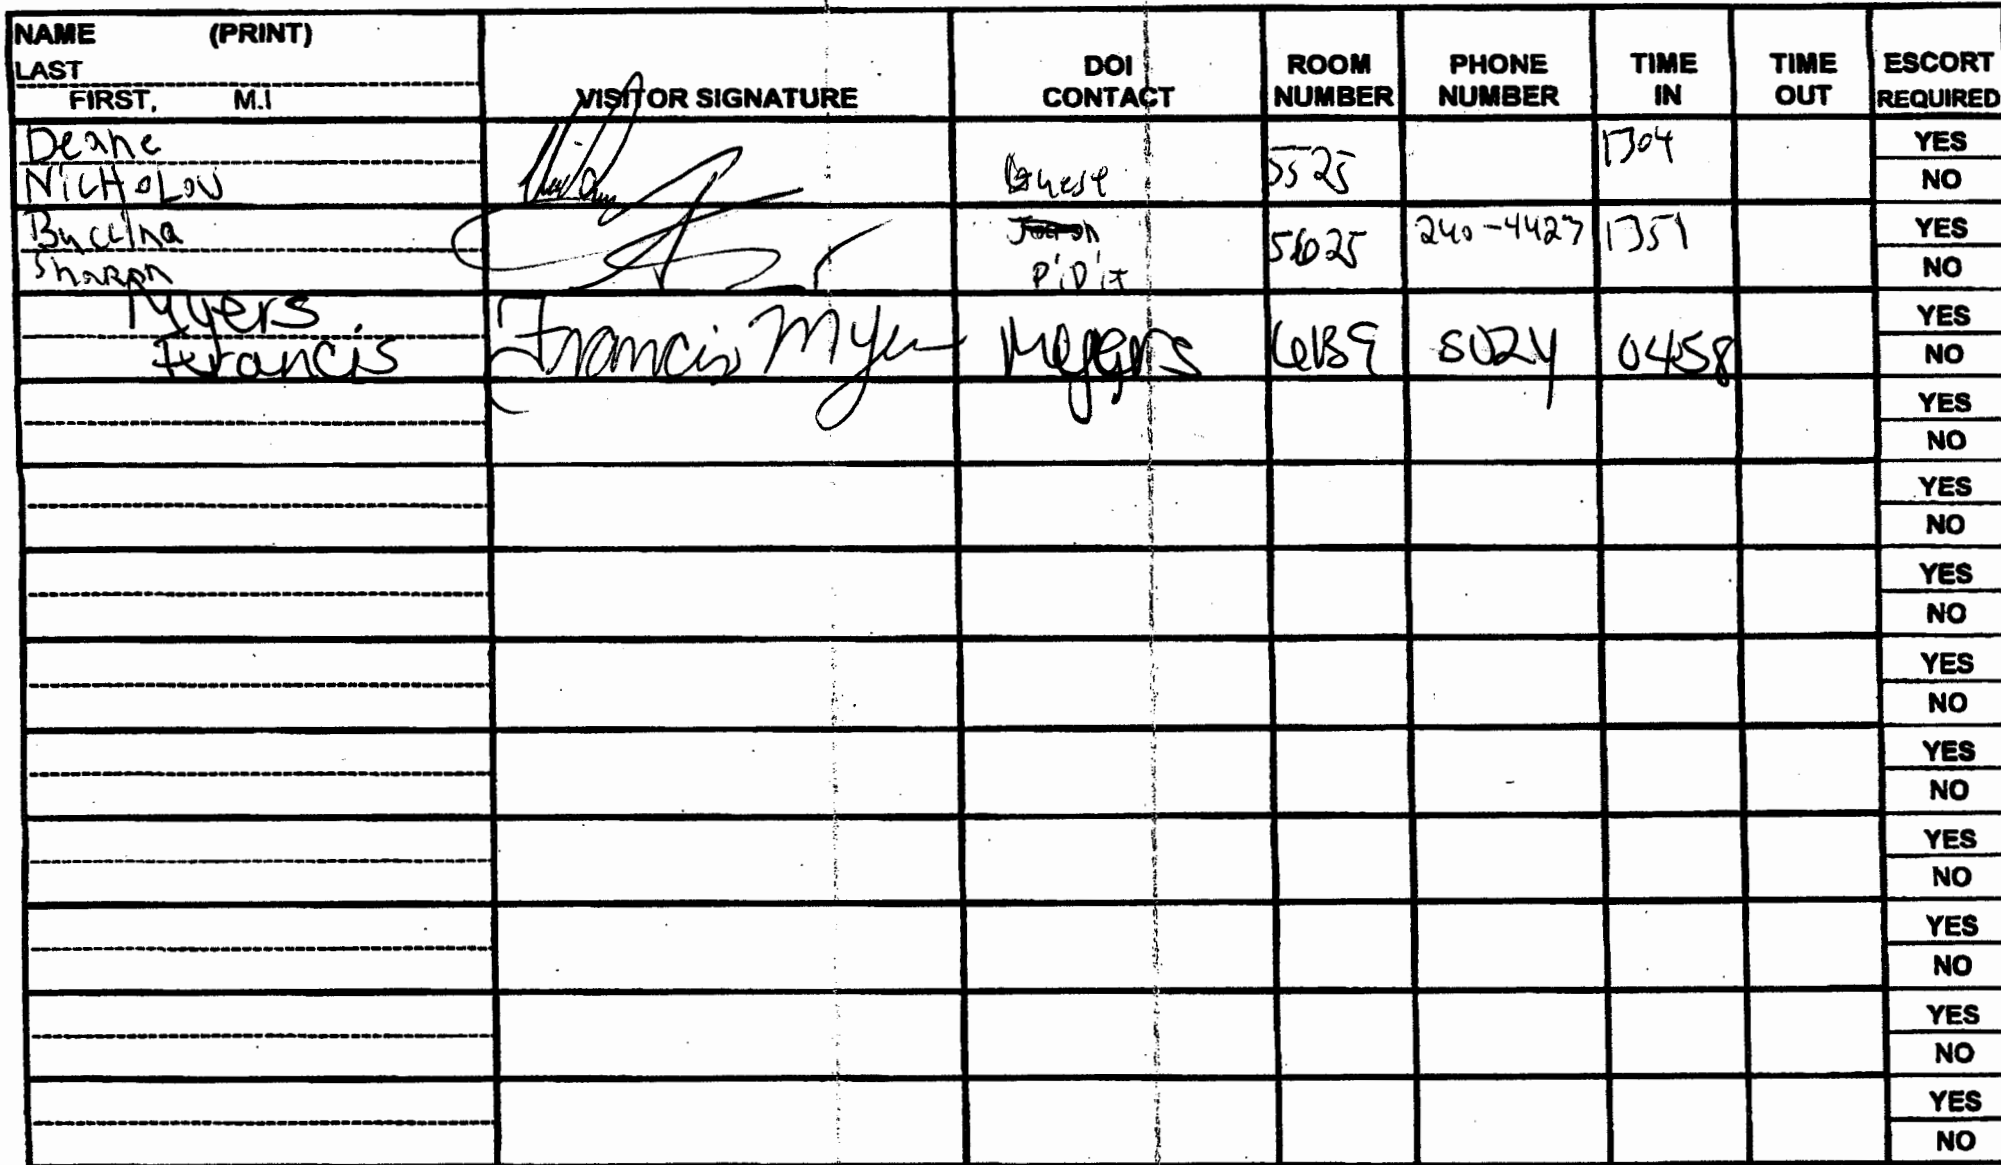 NAME (PRINT)
LAST
FIRST, M.I
VISITOR SIGNATURE
DOI
CONTACT
ROOM
NUMBER
PHONE
NUMBER
TIME
IN
TIME
OUT
ESCORT
REQUIRED
Deane
5525
1304
YES
NO
Buccina
Sharon
5625
240-4427
1351
YES
NO
Myers
Francis
Francis Myer
Meyers
5024
0458
YES
NO
YES
NO
YES
NO
YES
NO
YES
NO
YES
NO
YES
NO
YES
NO
YES
NO
YES
NO